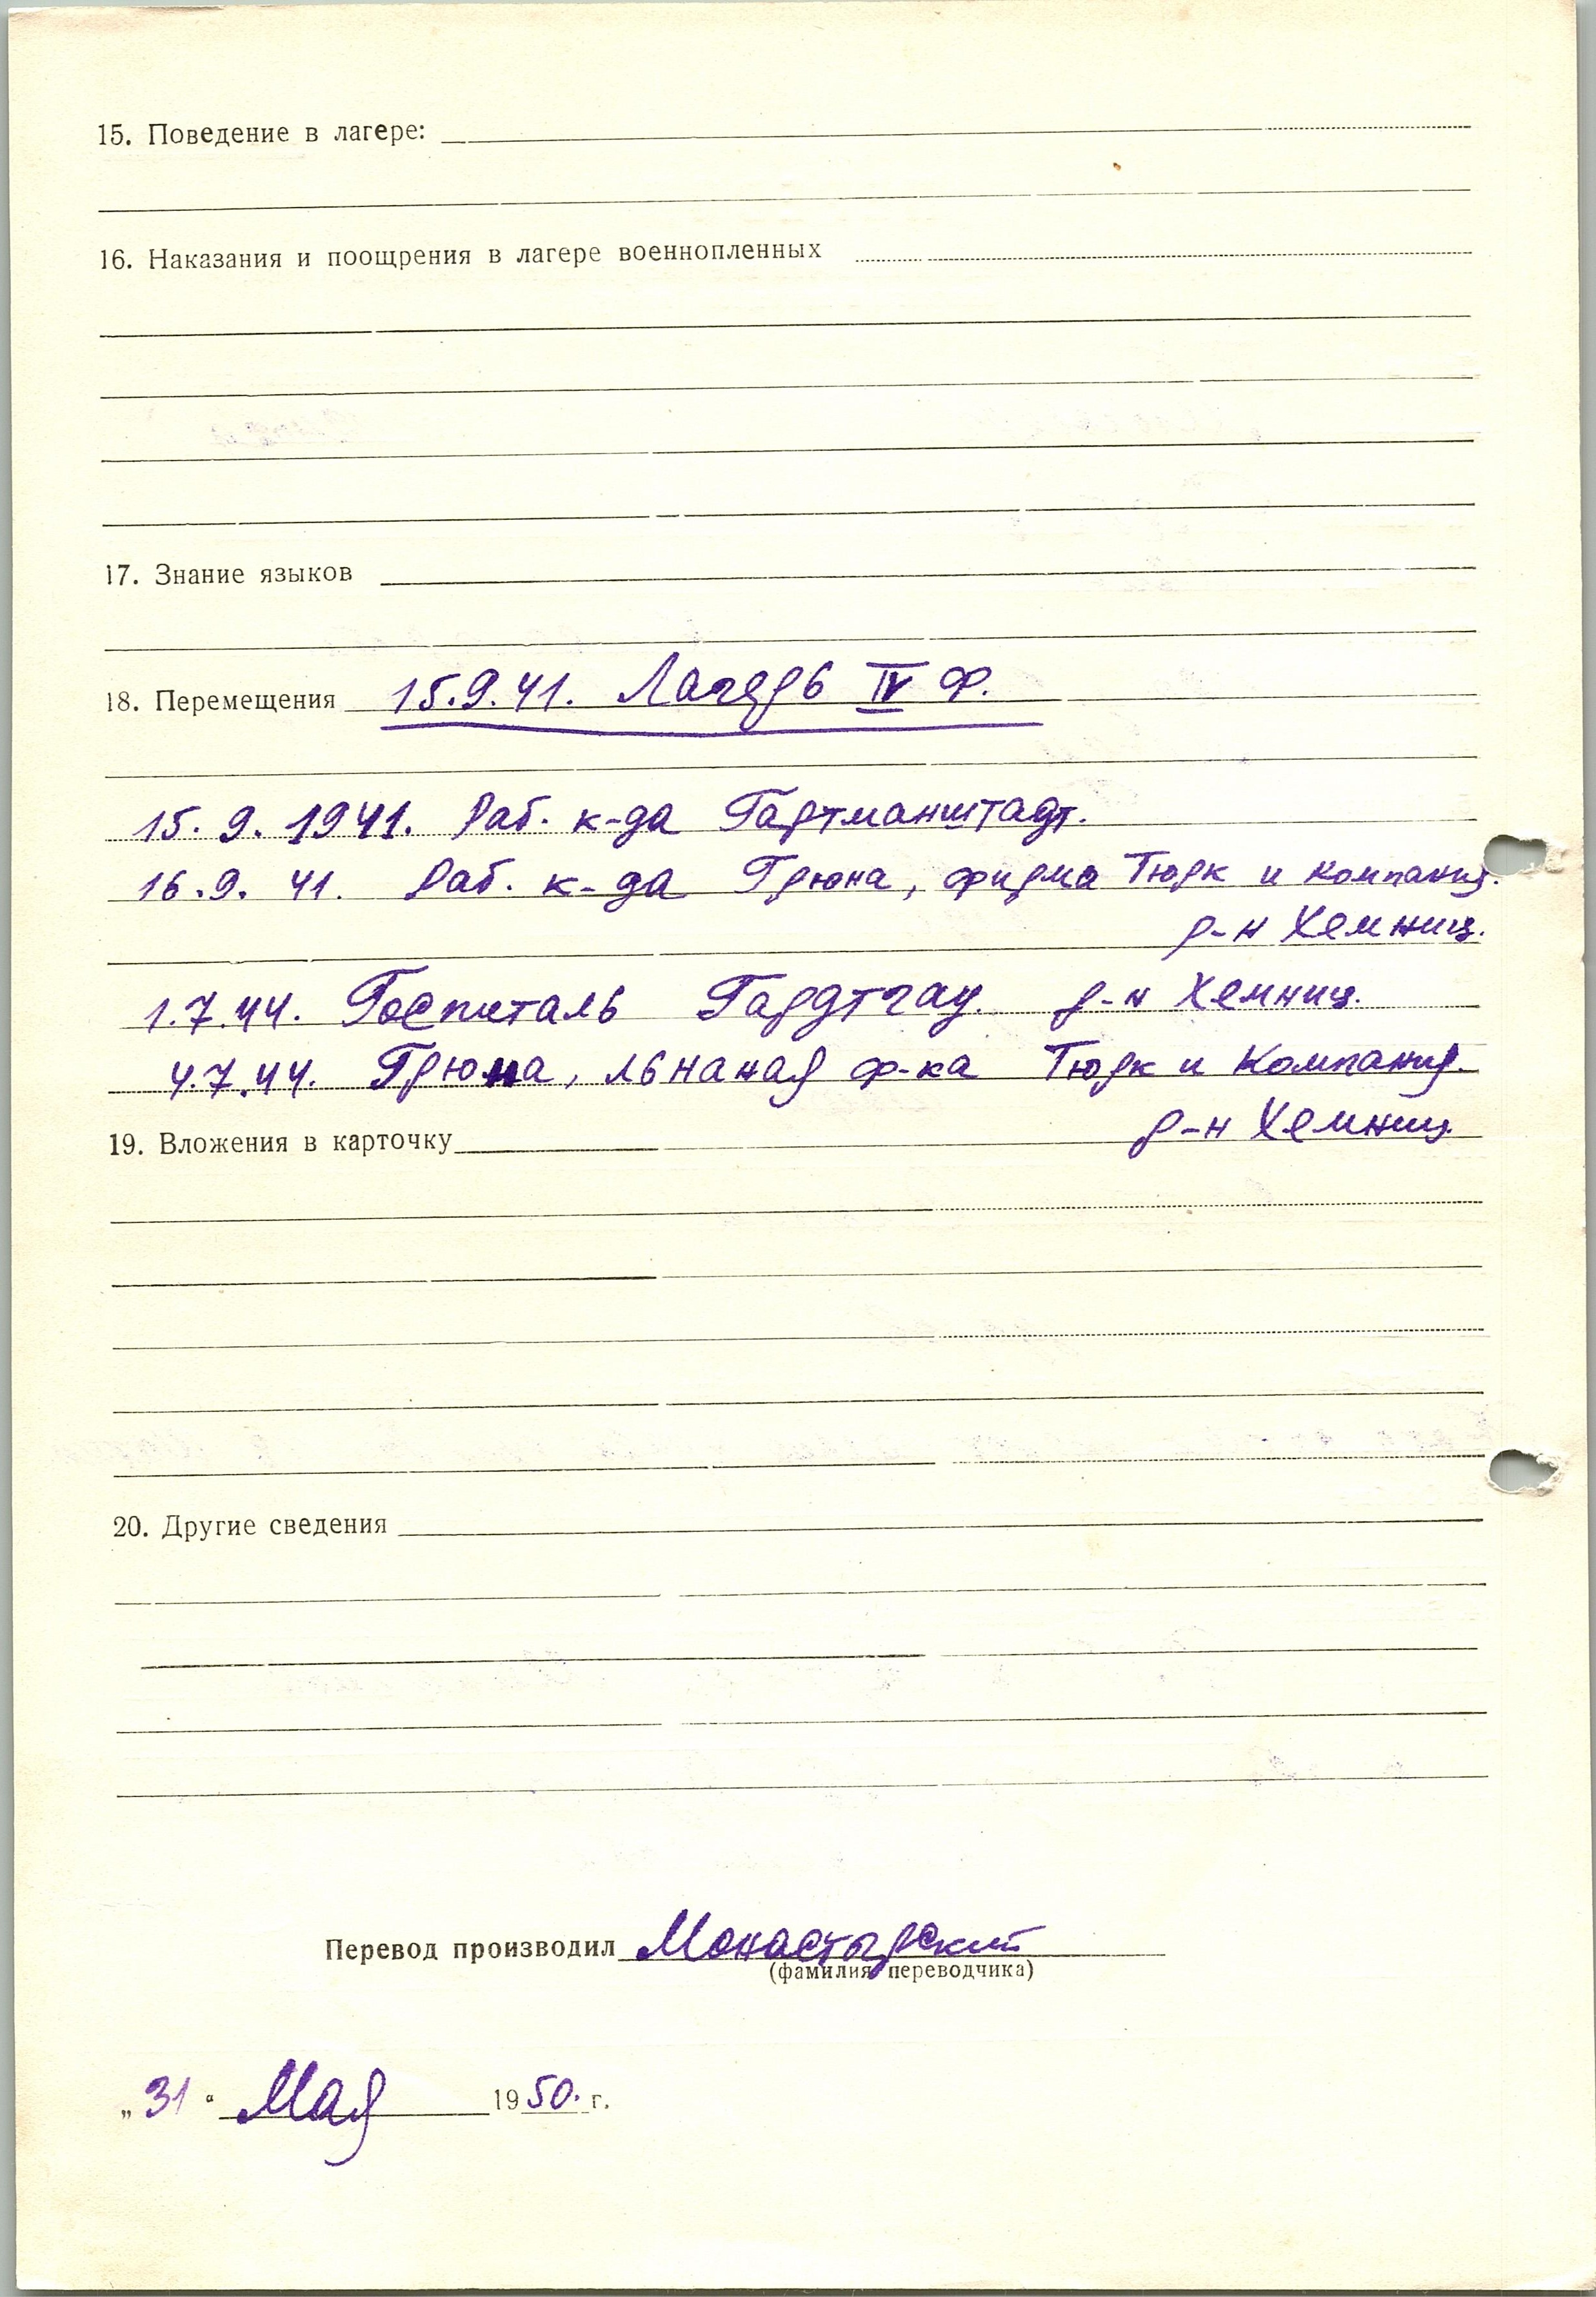 15. Поведение в лагере:
16. Наказания и поощрения в лагере военнопленных
17. Знание языков
18. Перемещения 15.9.41. Лагерь IV Ф.
15.9.1941. Раб. к-да Гартманштадт.
16.9.41. Раб. к-да Грюна, фирма Тюрк и компания.
р-н Хемниц.
1.7.44. Госпиталь Гардтгау. р-н Хемниц.
4.7.44. Грюна, льнаная ф-ка Тюрк и Компания.
р-н Хемниц
19. Вложения в карточку
20. Другие сведения
Перевод производил Монастырский
(фамилия переводчика)
„31“ Мая 1950. г.